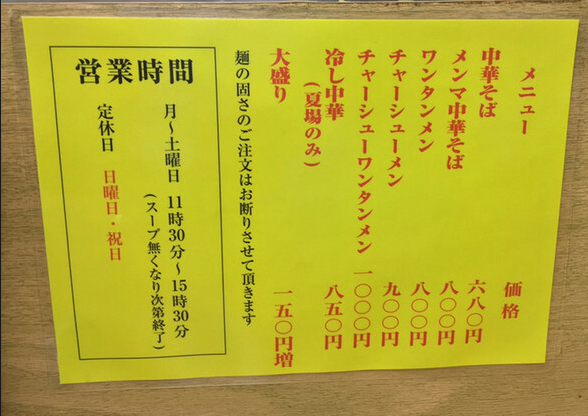 メニュー 価格
中華そば 六八〇円
メンマ中華そば 八〇〇円
ワンタンメン 八〇〇円
チャーシューメン 九〇〇円
チャーシューワンタンメン 一〇〇〇円
冷し中華 八五〇円
(夏場のみ)
大盛り 一五〇円増
麺の固さのご注文はお断りさせて頂きます
営業時間
月〜土曜日 11時30分〜15時30分
(スープ無くなり次第終了)
定休日 日曜日・祝日